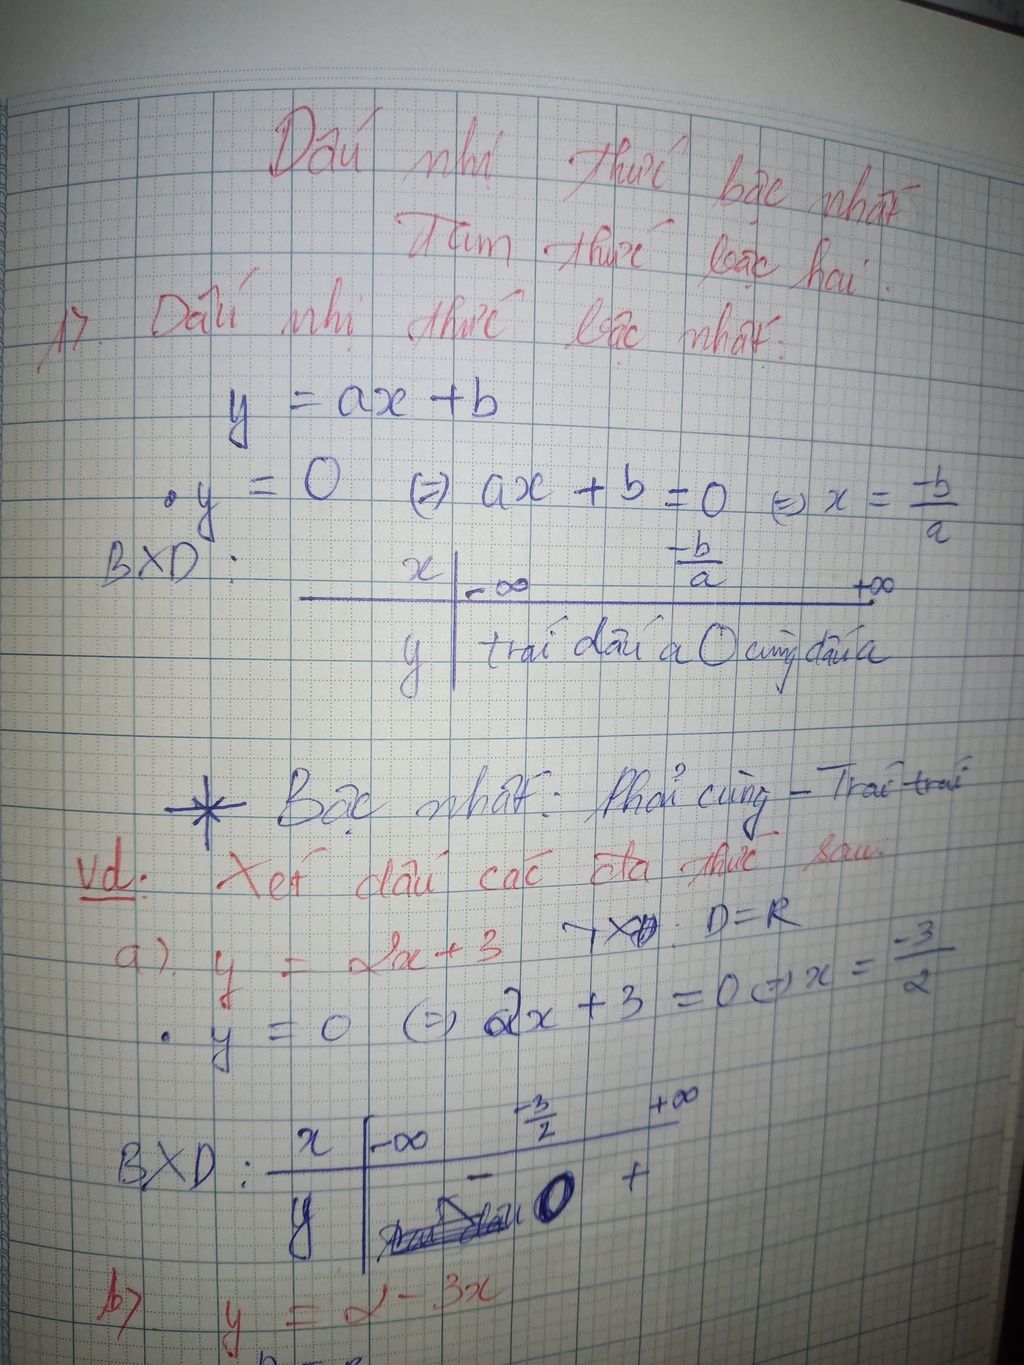 Dấu nhị thức bậc nhất
Tam thức bậc hai.
1). Dấu nhị thức bậc nhất:
y = ax + b
• y = 0 (=) ax + b = 0 (=) x = -b/a
BXD : x | -∞ -b/a +∞
y | trái dấu a 0 cùng dấu a
* Bậc nhất: Phải cùng - Trái trái
Vd: Xét dấu các đa thức sau.
a). y = 2x + 3 TXĐ: D = R
• y = 0 (=) 2x + 3 = 0 (=) x = -3/2
BXD : x | -∞ -3/2 +∞
y | - 0 +
b) y = 2 - 3x